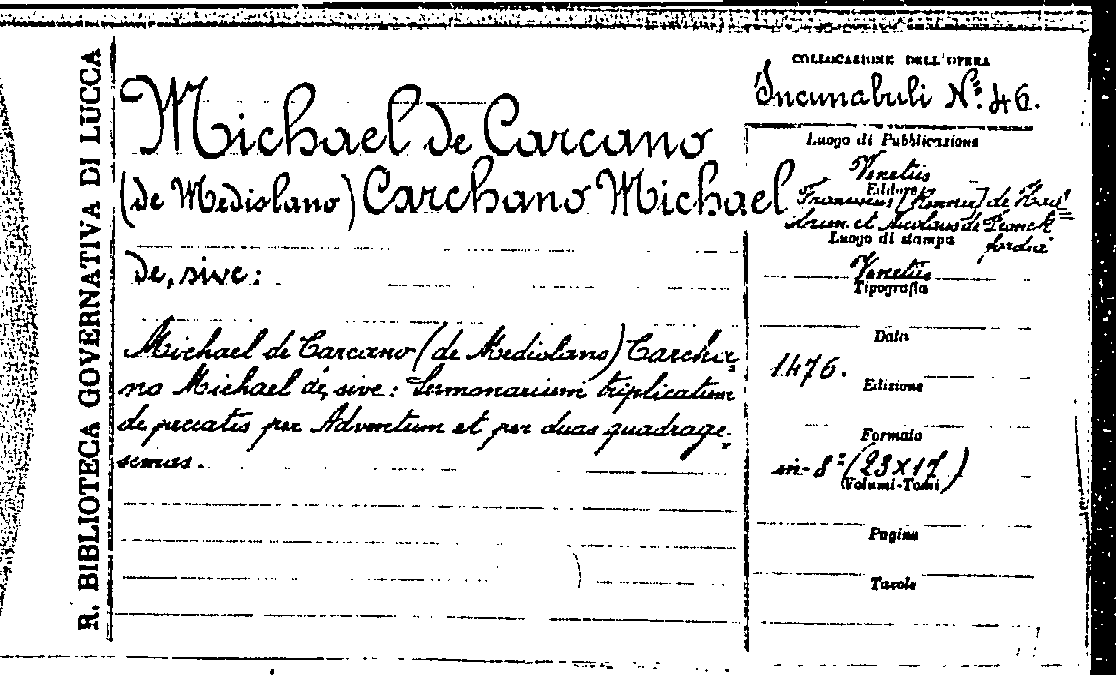 R. BIBLIOTECA GOVERNATIVA DI LUCCA
Michael de Carcano
(de Mediolano) Carchano Michael
de, sive:
Michael de Carcano (de Mediolano) Carcha-
no Michael de, sive: Sermonarium triplicatum
de peccatis per Adventum et per duas quadrage-
simas.
COLLOCAZIONE DELL'OPERA
Incunabuli Nº 46.
Luogo di Pubblicazione
Venetiis
Editore
Franciscus (Renner) de Hail-
brun et Nicolaus de Franck
fordia
Luogo di stampa
Venetiis
Tipografia
Data
1476.
Edizione
Formato
in-8º (23x17)
(Volumi-Tomi)
Pagine
Tavole